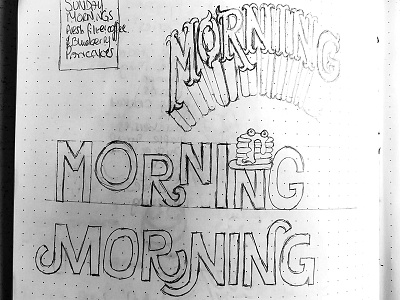 SUNDAY
MORNINGS
Fresh filter coffee
& Blueberry
Pancakes
MORNING
MORNING
MORNING